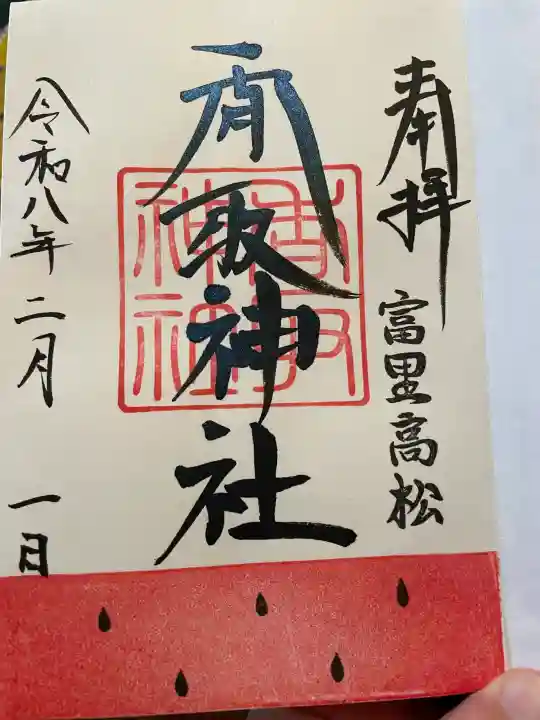 奉拝
富里高松
香取神社
香取神社
令和八年二月一日